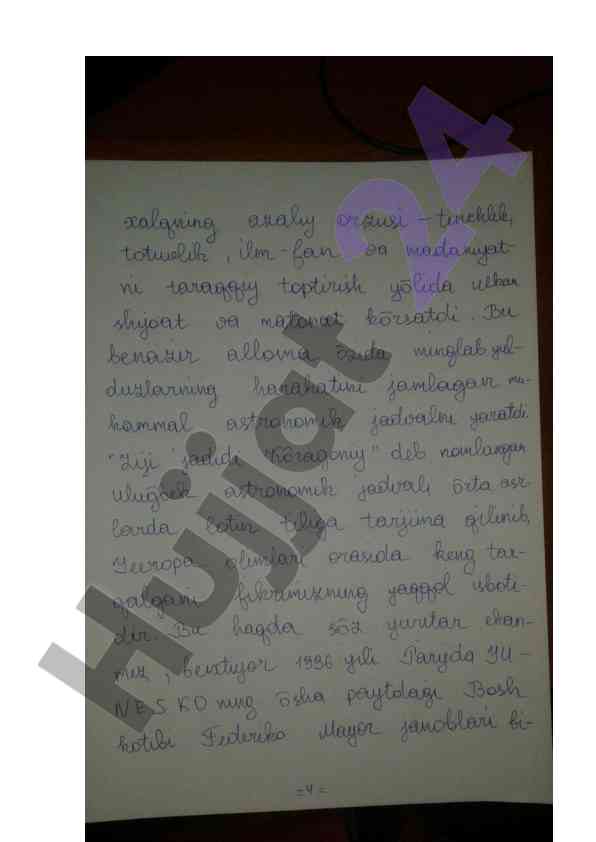 xalqning azaliy orzusi – tinchlik,
totuvlik, ilm-fan va madaniyat-
ni taraqqiy toptirish yōlida ulkan
shijoat va matonat kōrsatdi. Bu
benazir alloma ōzida minglab yul-
duzlarning harakatini jamlagan mu-
kammal astronomik jadvalni yaratdi.
"Ziji jadidi Kōragoniy" deb nomlangan
ulug̅bek astronomik jadvali ōrta asr-
larda lotin tiliga tarjima qilinib,
Yevropa olimlari orasida keng tar-
qalgani fikrimizning yaqqol isboti-
dir. Bu haqda sōz yuritar ekan-
miz, beixtiyor 1996 yili Parijda YU-
NESKO ning ōsha paytdagi Bosh
kotibi Federiko Mayor janoblari bi-
= 4 =
Hujjat 24